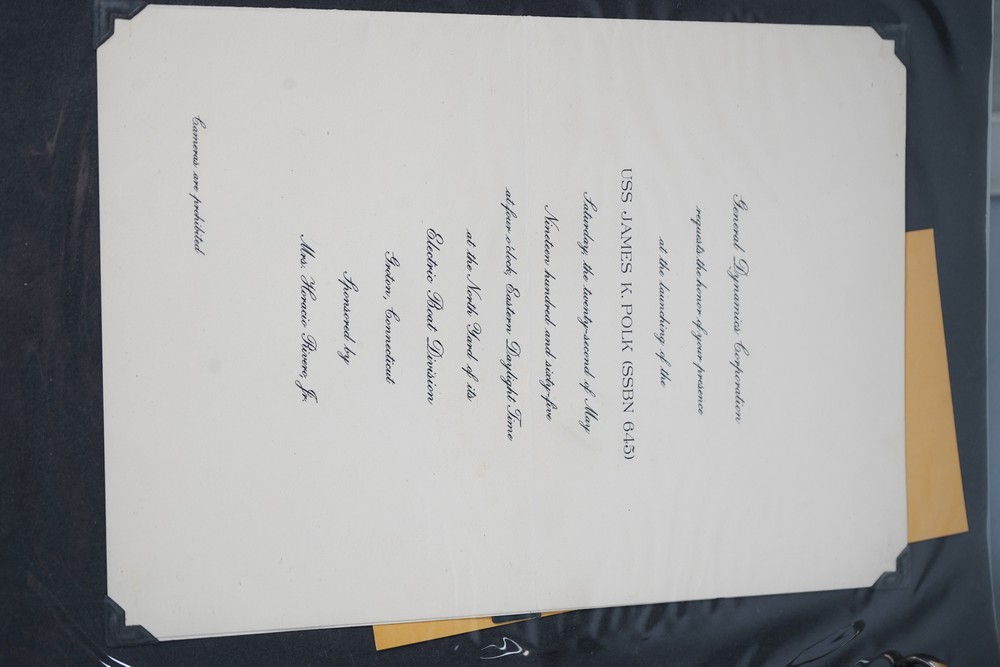 General Dynamics Corporation
requests the honor of your presence
at the launching of the
USS JAMES K. POLK (SSBN 645)
Saturday, the twenty-second of May
Nineteen hundred and sixty-five
at four o'clock, Eastern Daylight Time
at the North Yard of its
Electric Boat Division
Groton, Connecticut
Sponsored by
Mrs. Horacio Rivero, Jr.
Cameras are prohibited